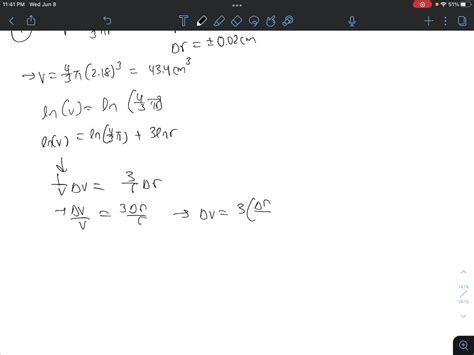 11:41 PM Wed Jun 8
51%
3
Dr = ±0.02cm
→ V = 4/3 π (2.18)³ = 43.4cm³
ln(v) = ln (4/3 π
ln(v) = ln(4/3 π) + 3lnr
↓
1/V DV = 3/r Dr
→ DV/V = 3Dr/r → DV = 3(Dr